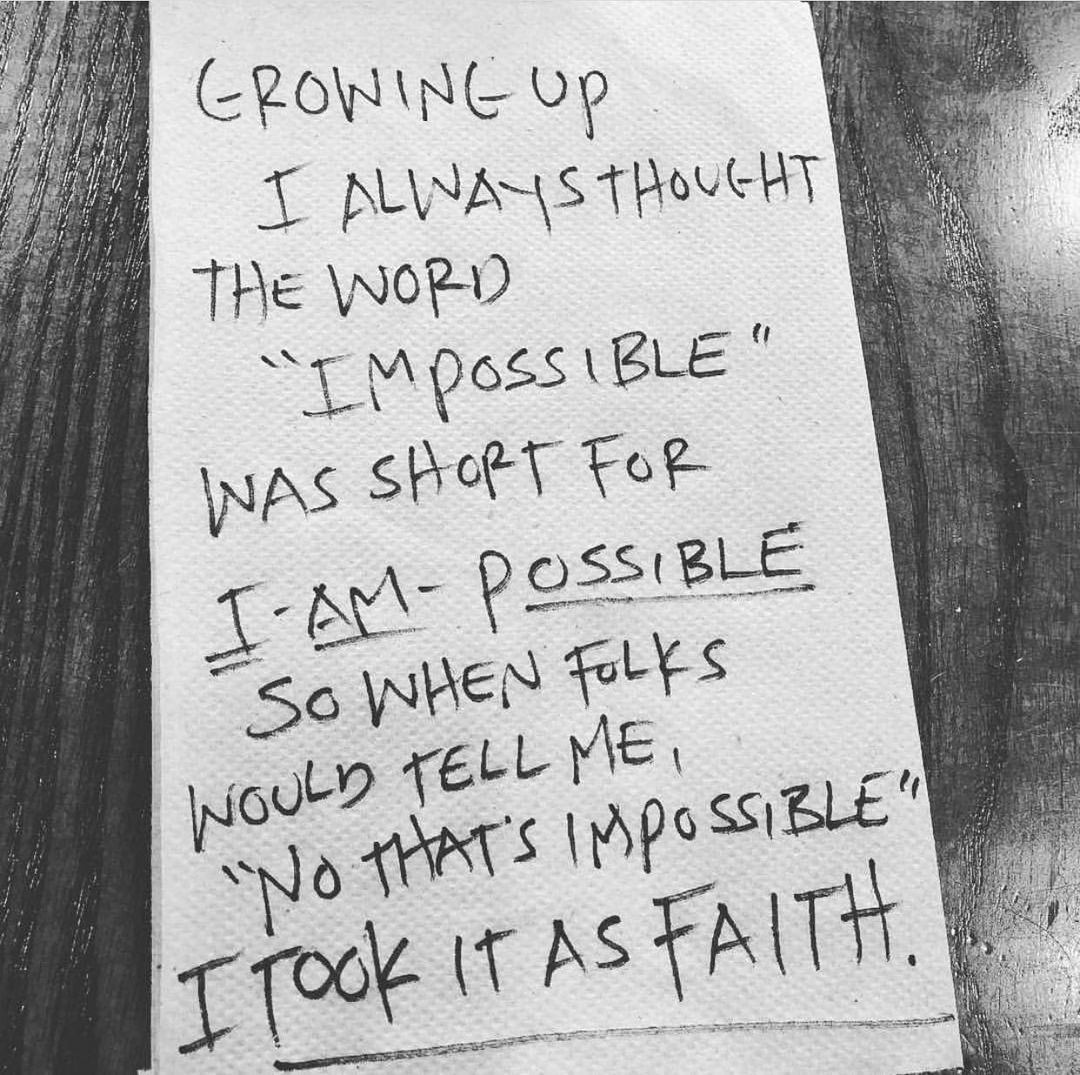 GROWING UP
I ALWAYS THOUGHT
THE WORD
"IMPOSSIBLE"
WAS SHORT FOR
I-AM-POSSIBLE
SO WHEN FOLKS
WOULD TELL ME,
"NO THAT'S IMPOSSIBLE"
I TOOK IT AS FAITH.